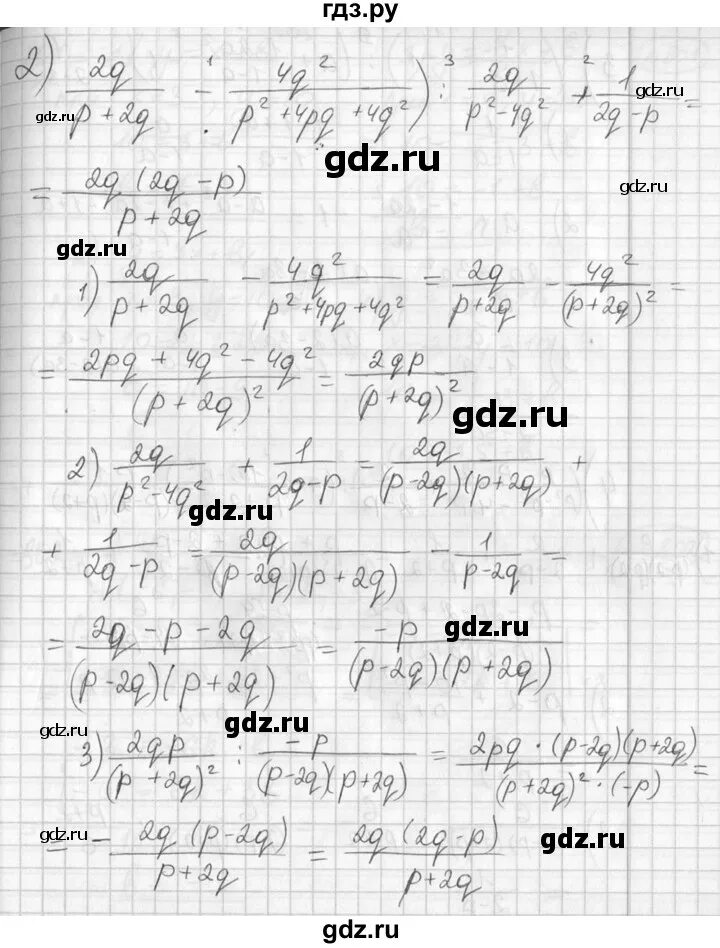 гдз.ру
2) 2q/(p + 2q) -¹ 4q²/(p² + 4pq + 4q²)) :³ 2q/(p² - 4q²) +² 1/(2q - p) =
gdz.ru
gdz.ru
gdz.ru
= 2q (2q - p)/(p + 2q)
gdz.ru
1) 2q/(p + 2q) - 4q²/(p² + 4pq + 4q²) = 2q/(p + 2q) - 4q²/(p + 2q)² =
= (2pq + 4q² - 4q²)/(p + 2q)² = 2qp/(p + 2q)²
gdz.ru
2) 2q/(p² - 4q²) + 1/(2q - p) = 2q/((p - 2q)(p + 2q)) +
gdz.ru
+ 1/(2q - p) = 2q/((p - 2q)(p + 2q)) - 1/(p - 2q) =
gdz.ru
= (2q - p - 2q)/((p - 2q)(p + 2q)) = -p/((p - 2q)(p + 2q))
gdz.ru
gdz.ru
3) 2qp/(p + 2q)² : -p/((p - 2q)(p + 2q)) = 2pq · (p - 2q)(p + 2q)/((p + 2q)² · (-p)) =
= - 2q (p - 2q)/(p + 2q) = 2q (2q - p)/(p + 2q)
gdz.ru
gdz.ru